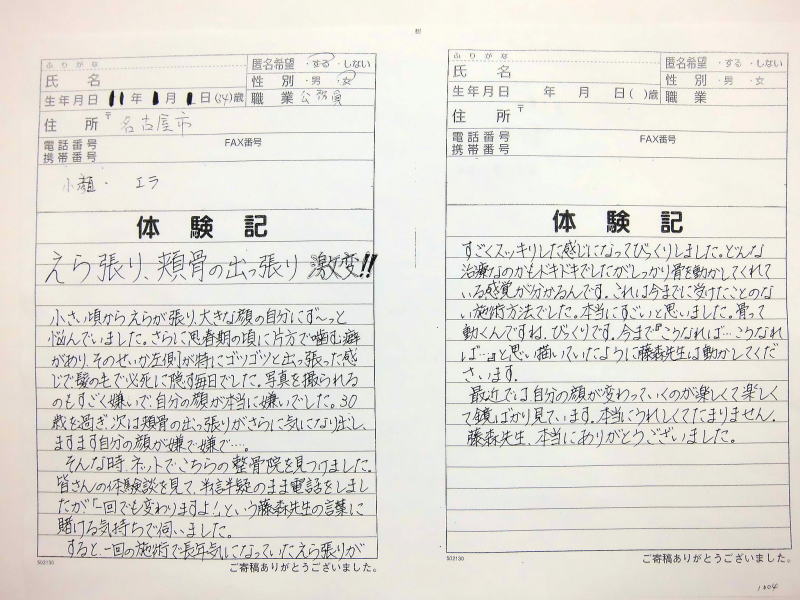 ふりがな
氏 名
匿名希望 ・する ・しない
性 別 ・男 ・女
生年月日 11年 1月 1日 (34)歳
職 業 公務員
住 所 〒 名古屋市
電話番号
携帯番号
FAX番号
小顔・ エラ
体 験 記
えら張り、頬骨の出っ張り 激変!!
小さい頃からえらが張り、大きな顔の自分にず〜っと
悩んでいました。さらに思春期の頃に片方で噛む癖
があり、そのせいか左側が特にゴツゴツと出っ張った感
じで髪の毛で必死に隠す毎日でした。写真を撮られる
のもすごく嫌いで自分の顔が本当に嫌いでした。30
歳を過ぎ、次は頬骨の出っ張りがさらに気になり出し、
ますます自分の顔が嫌で嫌で…。
そんな時、ネットでこちらの整骨院を見つけました。
皆さんの体験談を見て、半信半疑のまま電話をしまし
たが「一回でも変わりますよ!」という藤森先生の言葉に
賭ける気持ちで伺いました。
すると、一回の施術で長年気になっていたえら張りが
502130
ご寄稿ありがとうございました。
ふりがな
氏 名
匿名希望 ・する ・しない
性 別 ・男 ・女
生年月日 年 月 日( )歳
職 業
住 所 〒
電話番号
携帯番号
FAX番号
体 験 記
すごくスッキリした感じになってびっくりしました。どんな
治療なのかもドキドキでしたがしっかり骨を動かしてくれて
いる感覚が分かるんです。これは今までに受けたことのな
い施術方法でした。本当にすごいと思いました。骨って
動くんですね、びっくりです。今まで『こうなれば…こうなれ
ば…』と思い描いていたように藤森先生は動かしてくだ
さいます。
最近では自分の顔が変わっていくのが楽しくて楽しく
て鏡ばかり見ています。本当にうれしくてたまりません。
藤森先生、本当にありがとうございました。
502130
ご寄稿ありがとうございました。
1004